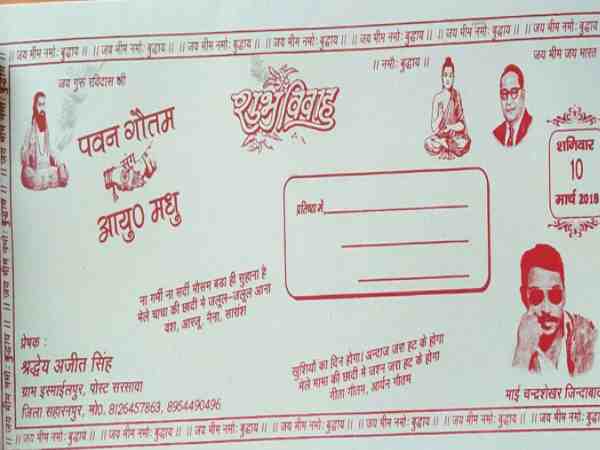 ।। जय भीम नमोः बुद्धाय ।। जय भीम नमोः बुद्धाय ।। जय भीम नमोः बुद्धाय ।। जय भीम नमोः बुद्धाय ।। जय भीम नमोः बुद्धाय ।। जय भीम नमोः बुद्धाय ।।
जय गुरु रविदास श्री
।। नमोः बुद्धाय ।।
जय भीम जय भारत
पवन गौतम
संग
आयु० मधु
शुभ विवाह
शनिवार
10
मार्च 2018
प्रतिष्ठा में,
ना गर्मी ना सर्दी मौसम बडा ही सुहाना है
मेले चाचा की छादी मे जलूल-जलूल आना
वंश, आरजू, नैना, सारांश
खुशियों का दिन होगा। अन्दाज जरा हट के होगा
मेले मामा की छादी मे जशन जरा हट के होगा
गीता गौतम, आर्यन गौतम
प्रेषक :
श्रद्धेय अजीत सिंह
ग्राम इस्माईलपुर, पोस्ट सरसावा
जिला सहारनपुर, मो0. 8126457863, 8954490496
भाई चन्द्रशेखर जिन्दाबाद
।। जय भीम नमोः बुद्धाय ।। जय भीम नमोः बुद्धाय ।। जय भीम नमोः बुद्धाय ।। जय भीम नमोः बुद्धाय ।। जय भीम नमोः बुद्धाय ।। जय भीम नमोः बुद्धाय ।।